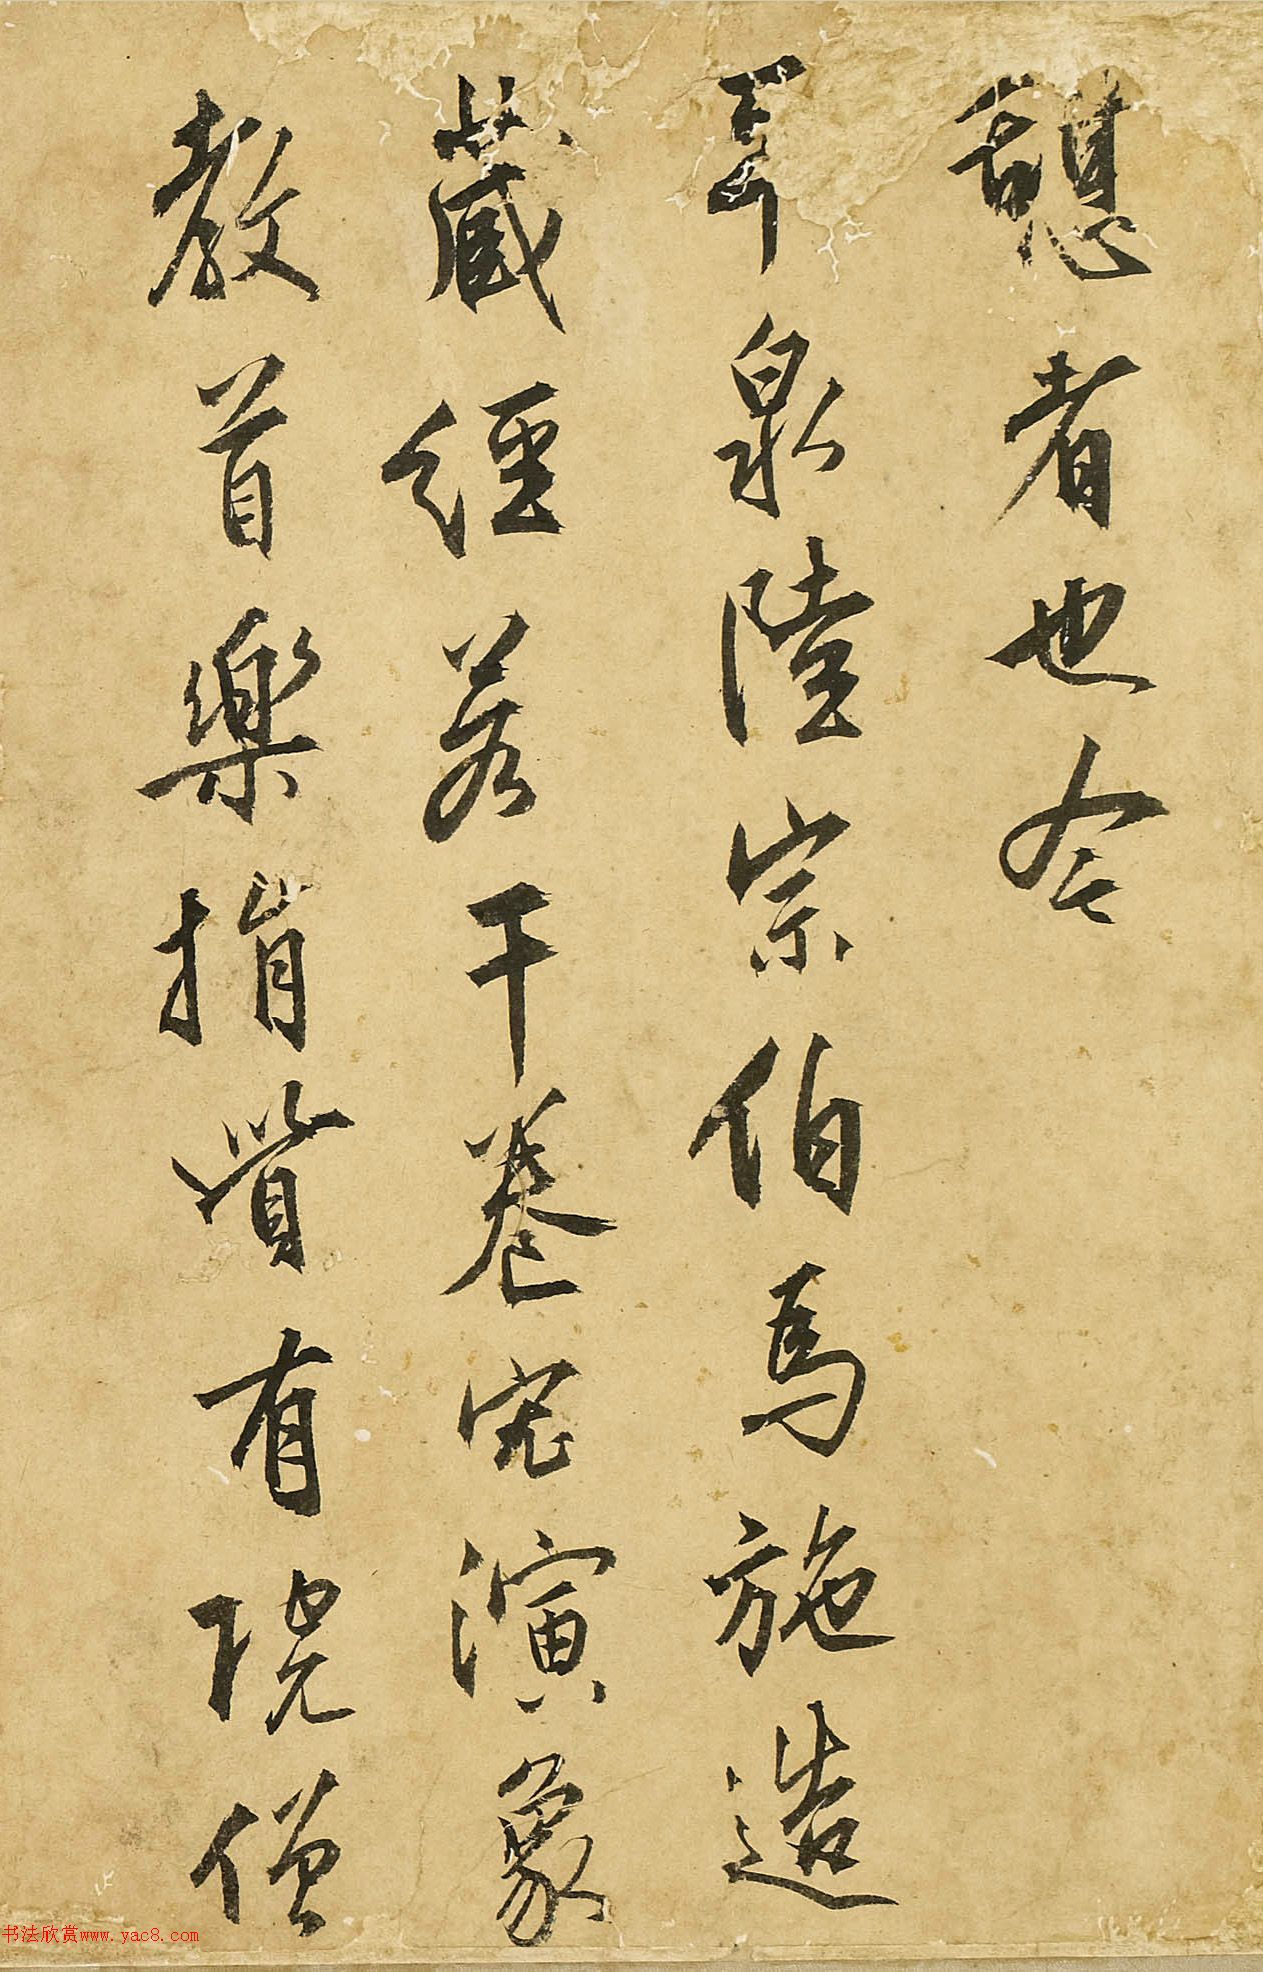 憩者也今
平泉陸宗伯為施造
藏經若干卷宏演象
教首樂捐貲有院僧
书法欣赏www.yac8.com